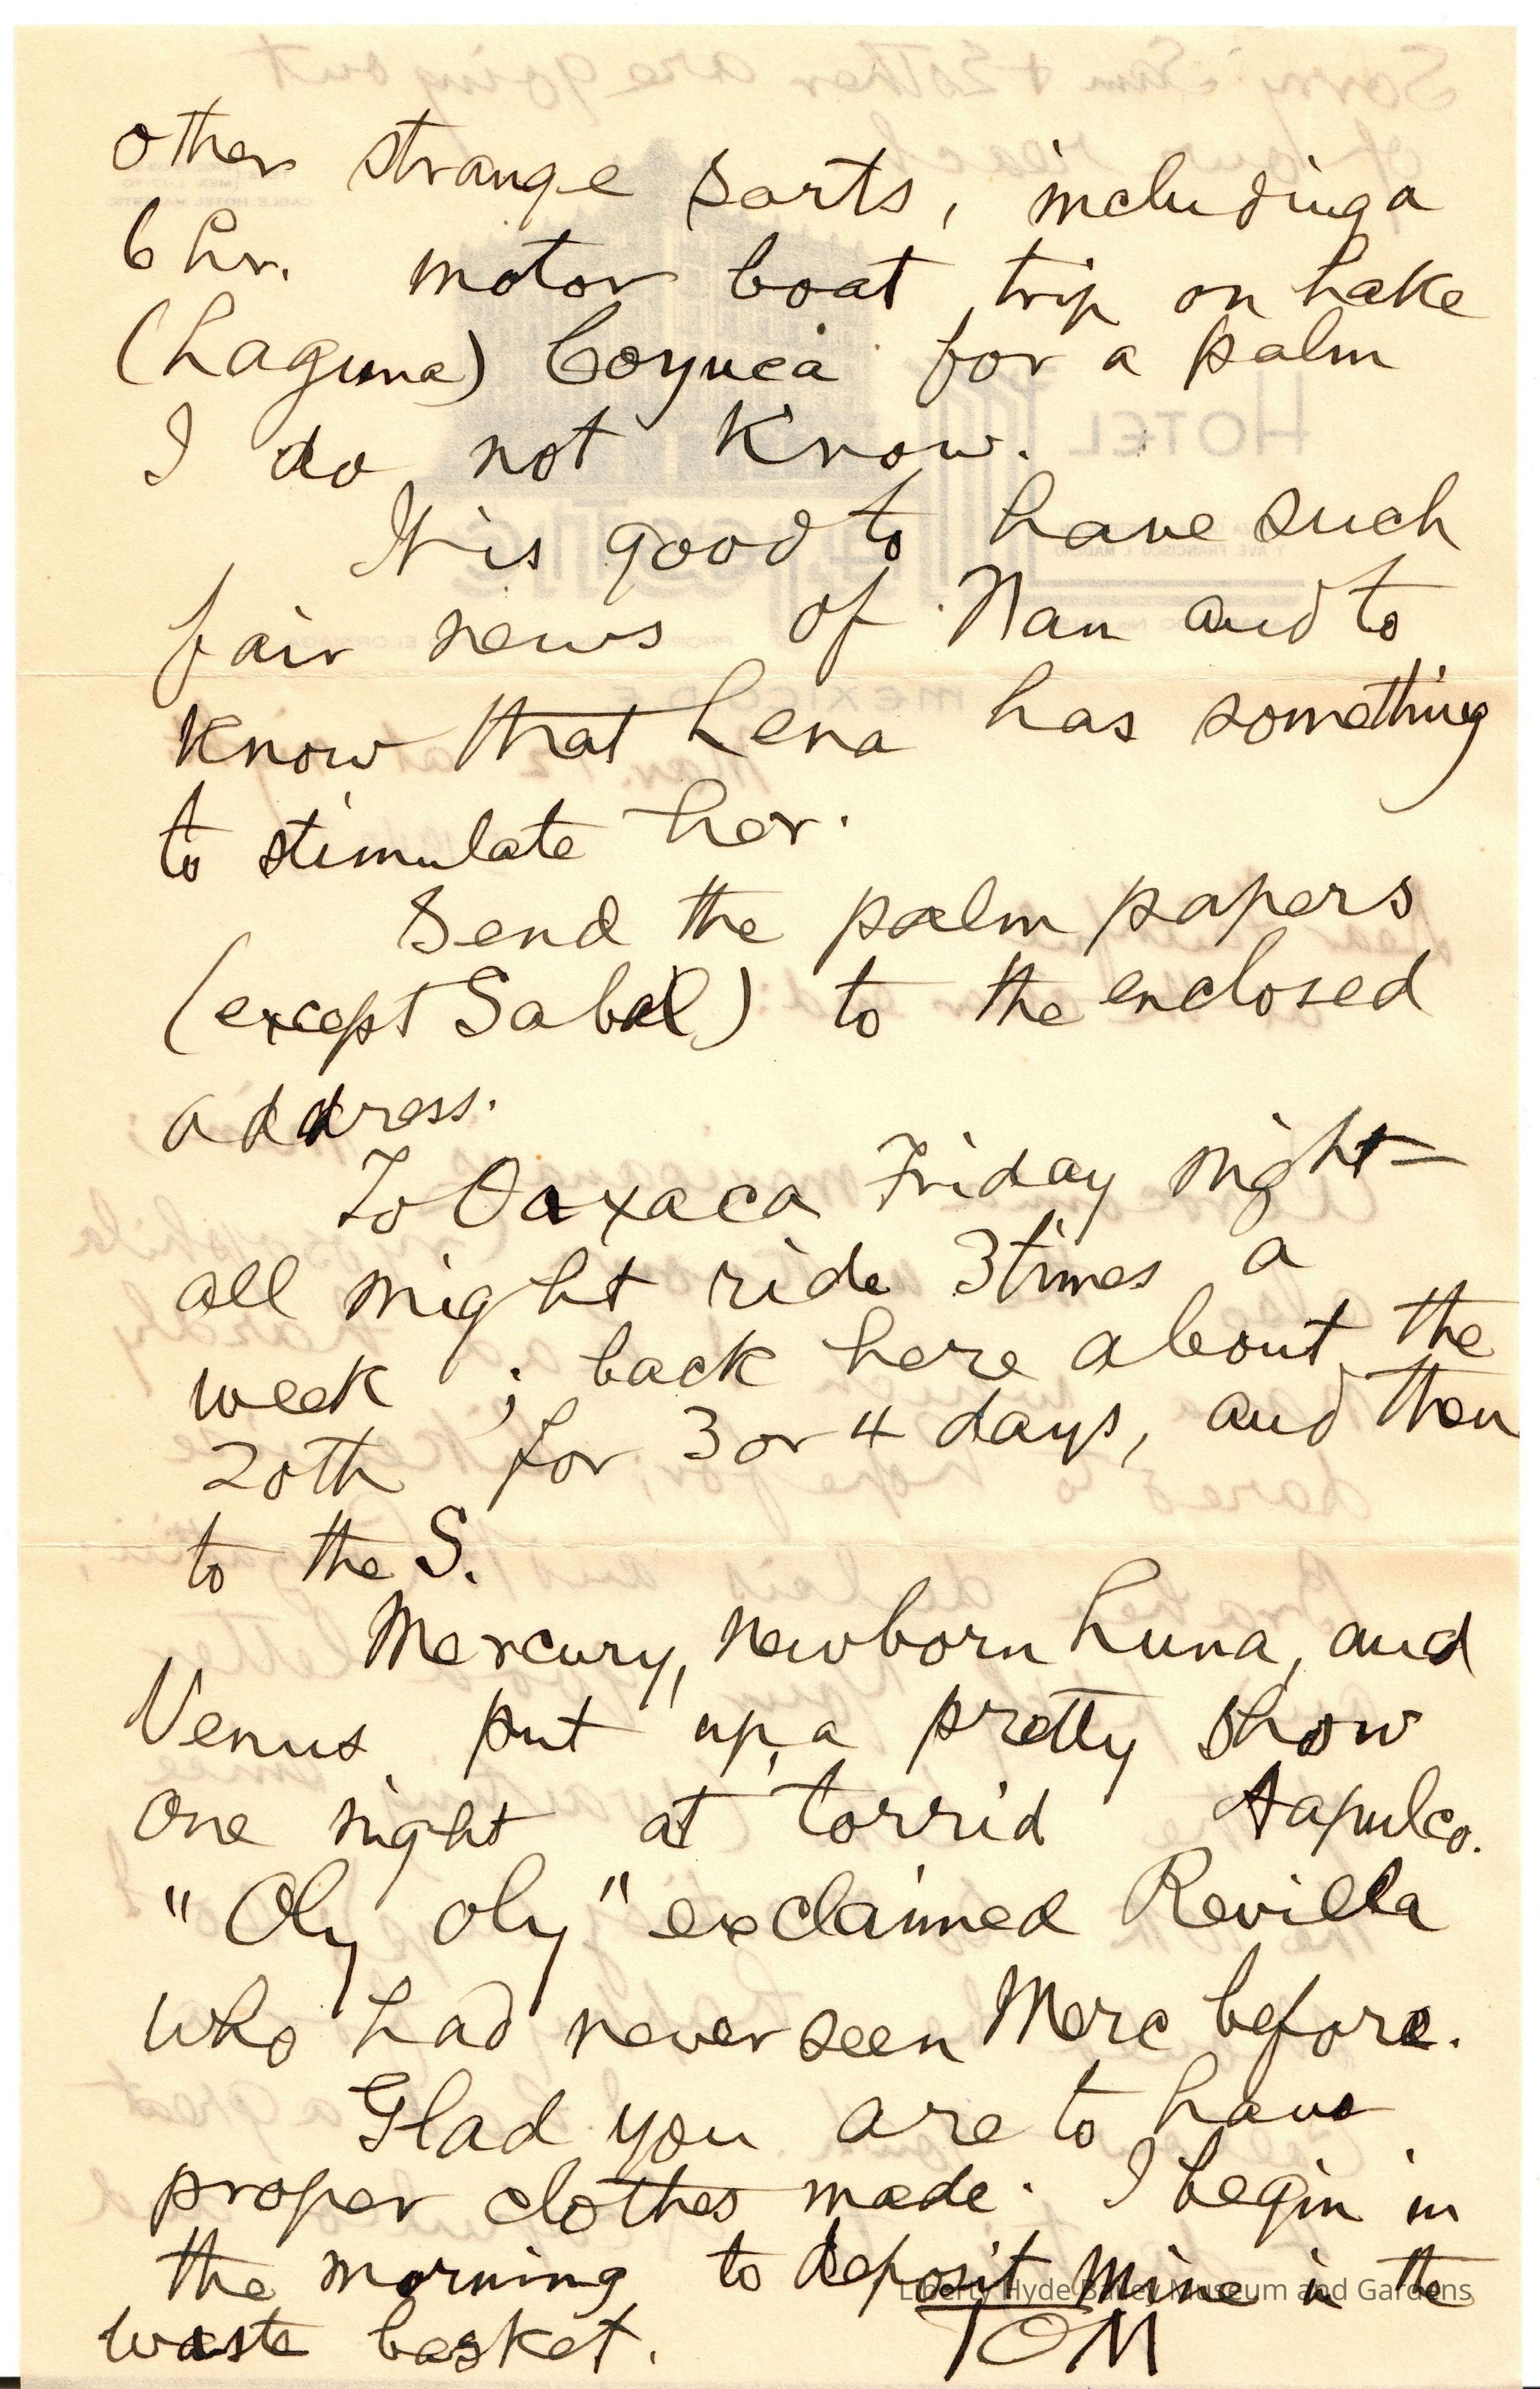 other strange sorts, including a
6 hr. motor boat trip on Lake
(Laguna) Coyuca for a palm
I do not know.
It is good to have such
fair news of Nan and to
know that Lena has something
to stimulate her.
Send the palm papers
(except Sabal) to the enclosed
address.
To Oaxaca Friday night—
all night ride 3 times a
week; back here about the
20th for 3 or 4 days, and then
to the S.
Mercury, newborn Luna, and
Venus put up a pretty show
one night at torrid Aapulco.
"Oly oly" exclaimed Revilla
who had never seen Merc before.
Glad you are to have
proper clothes made. I begin in
the morning to deposit mine in the
waste basket.
TOM
Liberty Hyde Bailey Museum and Gardens